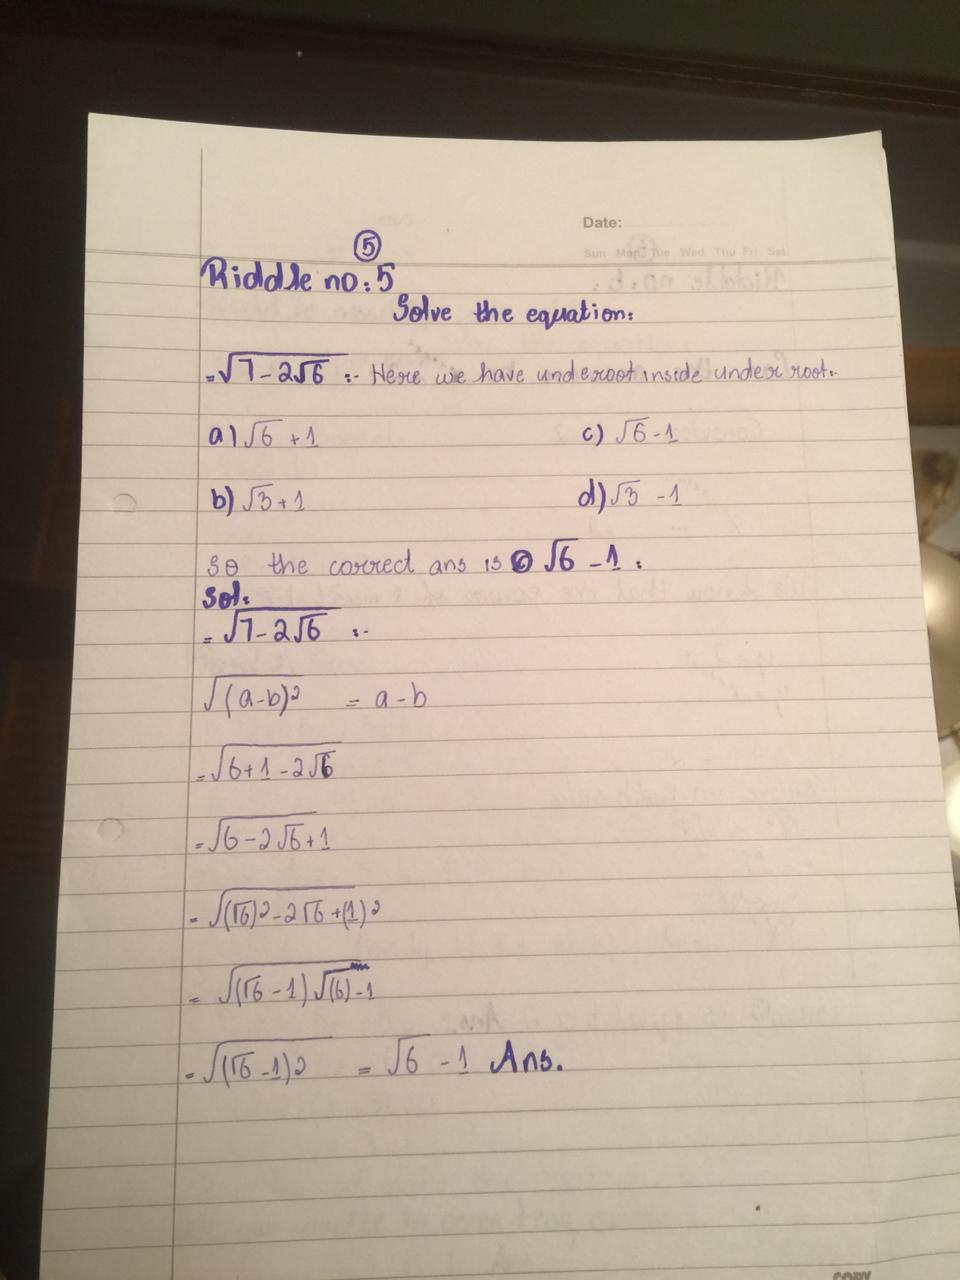 Date:
Sun Mon Tue Wed Thu Fri Sat
⑤
Riddle no:5
Solve the equation:
=√7-2√6 :- Here we have underoot inside under root:-
a) √6 +1 c) √6-1
b) √3+1 d) √3 -1
So the correct ans is √6 -1 :
Sol:
= √7-2√6 :-
√(a-b)² = a-b
=√6+1-2√6
=√6-2√6+1
= √(√6)²-2√6+(1)²
= √(√6-1)√(6)-1
=√(√6-1)² = √6 -1 Ans.
COPY